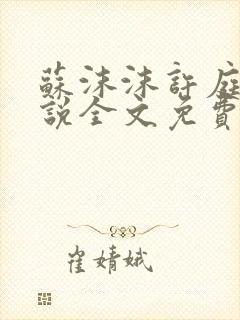 蘇沫沫許庭
說全文免費
崔婧娥